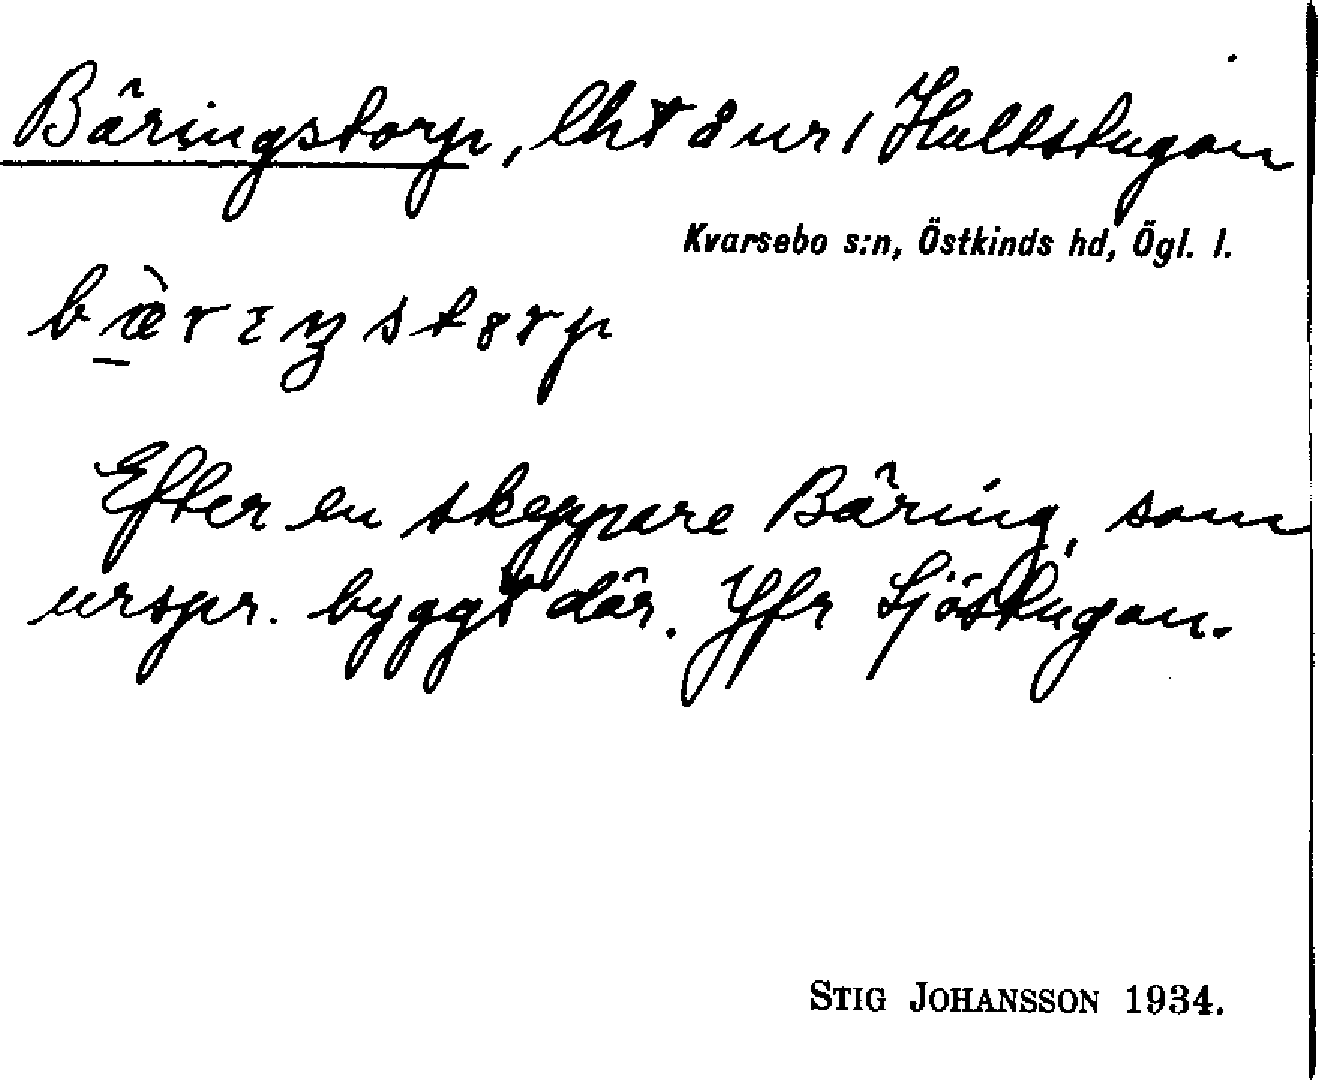 Bäringstorp, lht å nr 1 Hultstugan
Kvarsebo s:n, Östkinds hd, Ögl. l.
Efter en skeppare Bäring, som
urspr. byggt där. Jfr Sjöstugan.
STIG JOHANSSON 1934.